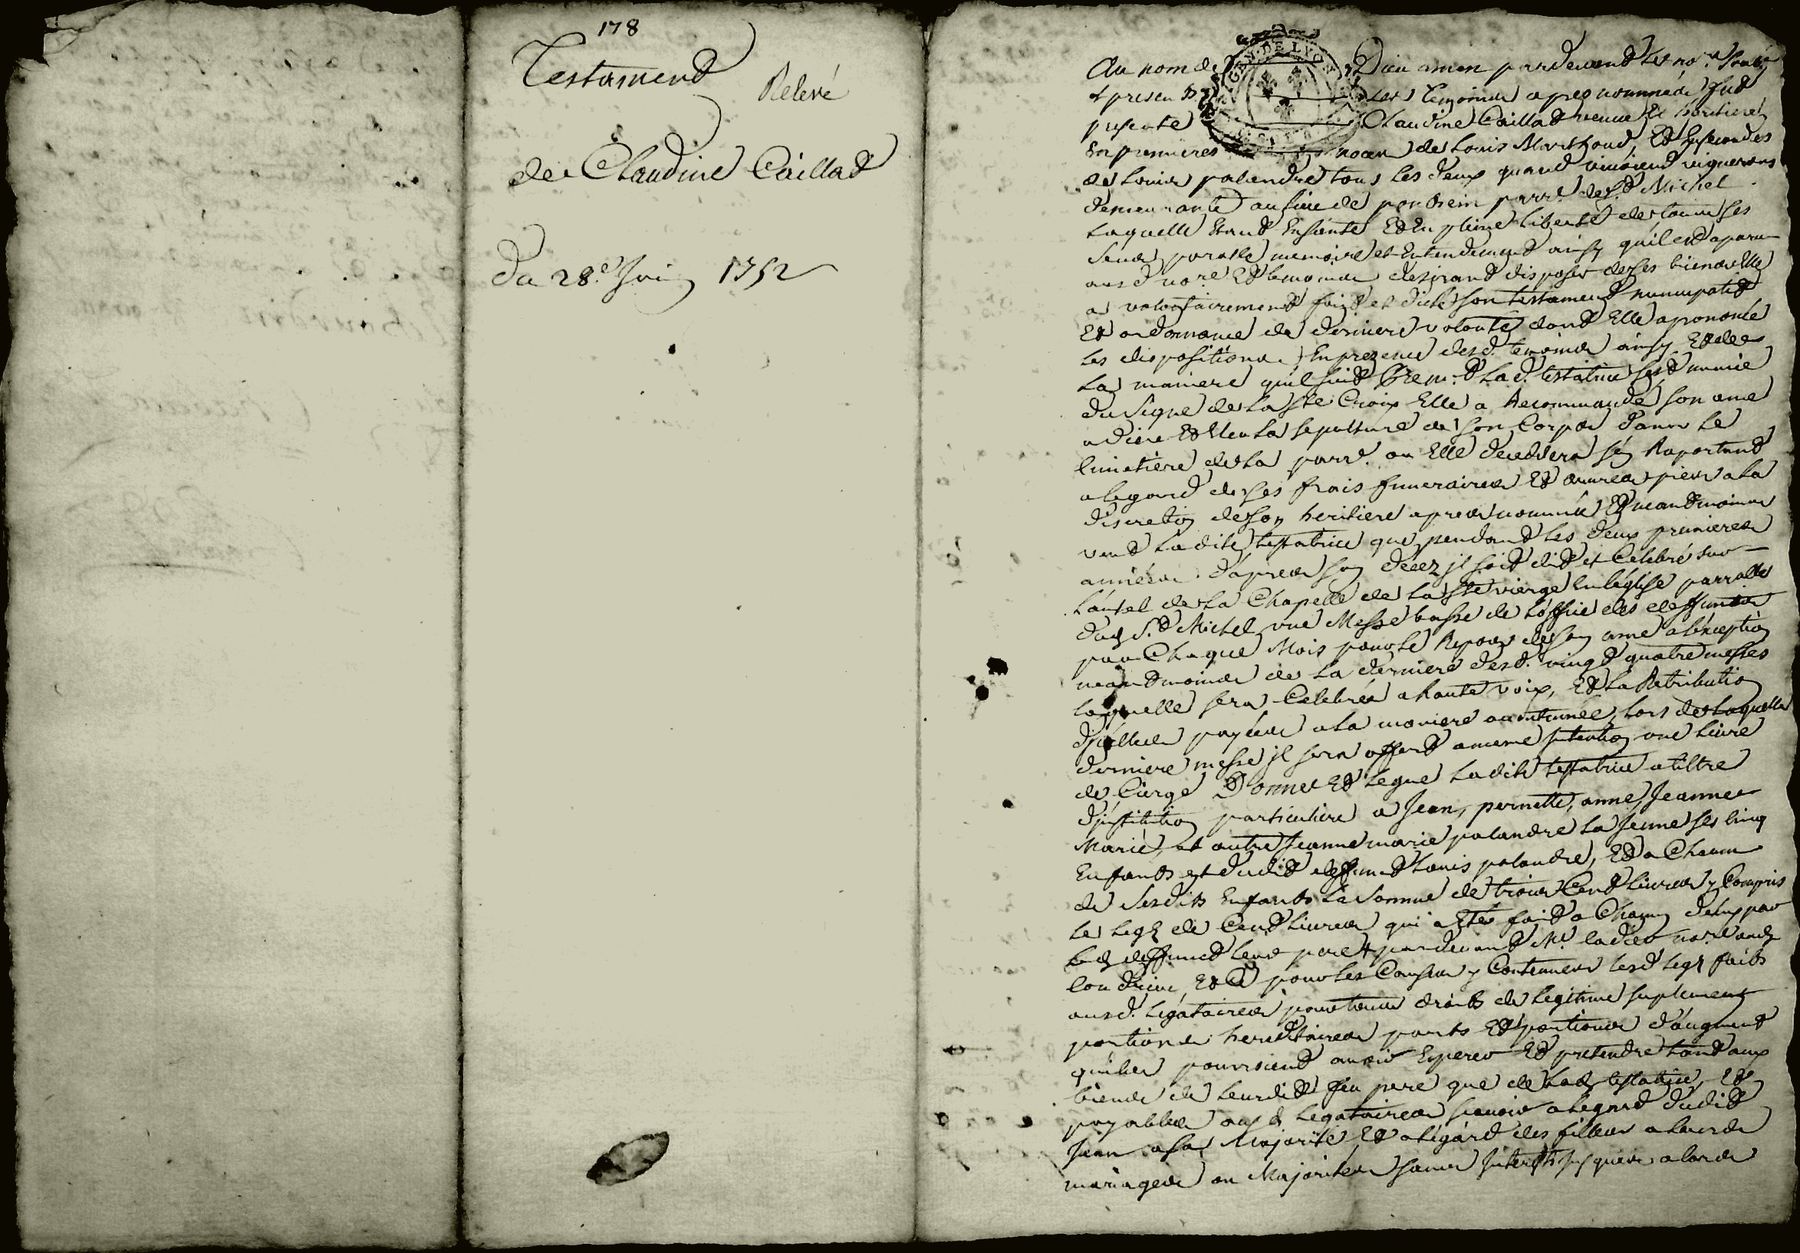 178
Testament
Relevé
de Claudine Caillat
Du 28e Juin 1752
GEN. DE LYON
Au nom de Dieu amen pardevant Le no.re
et presents Les Temoins apres nommés fut
presente Claudine Caillat veuve et heritiere
En premieres noces de Louis Marthoud, Et En secondes
de Louis palandre tous les deux quand vivoient vignerons
demeurante au lieu de parr. de St Michel
Laquelle Etant En santé Et En pleine liberté de tous ses
sens parolle memoire et Entendement ainsy qu'il est aparu
aud no.re Et temoins desirant disposer de ses biens Elle
a volontairement fait et dicté son testament nuncupatif
Et ordonnance de derniere volonté dont Elle a prononcé
les dispositions En prezence desd. temoins ainsy Et de
La maniere quil suit Prem.t Lad. testatrice s'est munie
du Signe de La Ste Croix Elle a Recommandé son ame
a dieu Et Eleu La sepulture de son Corps dans Le
Cimetière de La parr. ou Elle decedera s'en Raportant
a legard de ses frais funeraires Et œuvres pies a La
discretion de son heritiere apres nommée Et neantmoins
veut Ladite testatrice que pendant Les deux premieres
années d'apres son decez il soit dit et Celebré sur
L'autel de La Chapelle de La Ste vierge En l'église parrolle
dud St Michel une Messe basse de L'office des deffunts
par Chaque Mois pour le Repos de son ame a l'exception
neantmoins de La derniere desd. vingt quatre messes
laquelle sera Celebrée a haute voix, Et La Retribution
d'icelles payée a la maniere accoutumée, Lors de Laquelle
derniere messe il sera offert a meme intention une Livre
de Cierge Donne Et Legue Ladite testatrice a tiltre
d'institution particuliere a Jean, pernette, anne, Jeanne
Marie, et autre Jeanne marie palandre La Jeune ses Cinq
Enfants et dudit deffunt Louis palandre, Et a Chacun
de Sesdits Enfants La Somme de trois Cent Livres y Compris
Le Legs de Cent Livres qui a Eté fait a Chacun d'eux par
Led deffunt Leur pere pardevant Me no.re aud
Condrieu, Et Ce pour les Causes y Contenues lesd Legs faits
ausd. Legataires pour tous droits de Legitime suplement
portions hereditaires parts Et portions d'augment
qu'iles pourroient avoir Esperer Et pretendre tant aux
biens de Leurdit feu pere que de Lad testatrice, Et
payables ausd Legataires sçavoir a legard dudit
Jean a sa Majorité, Et a l'égard des filles a Leurs
mariages ou Majorités sans Interest Jusques alors